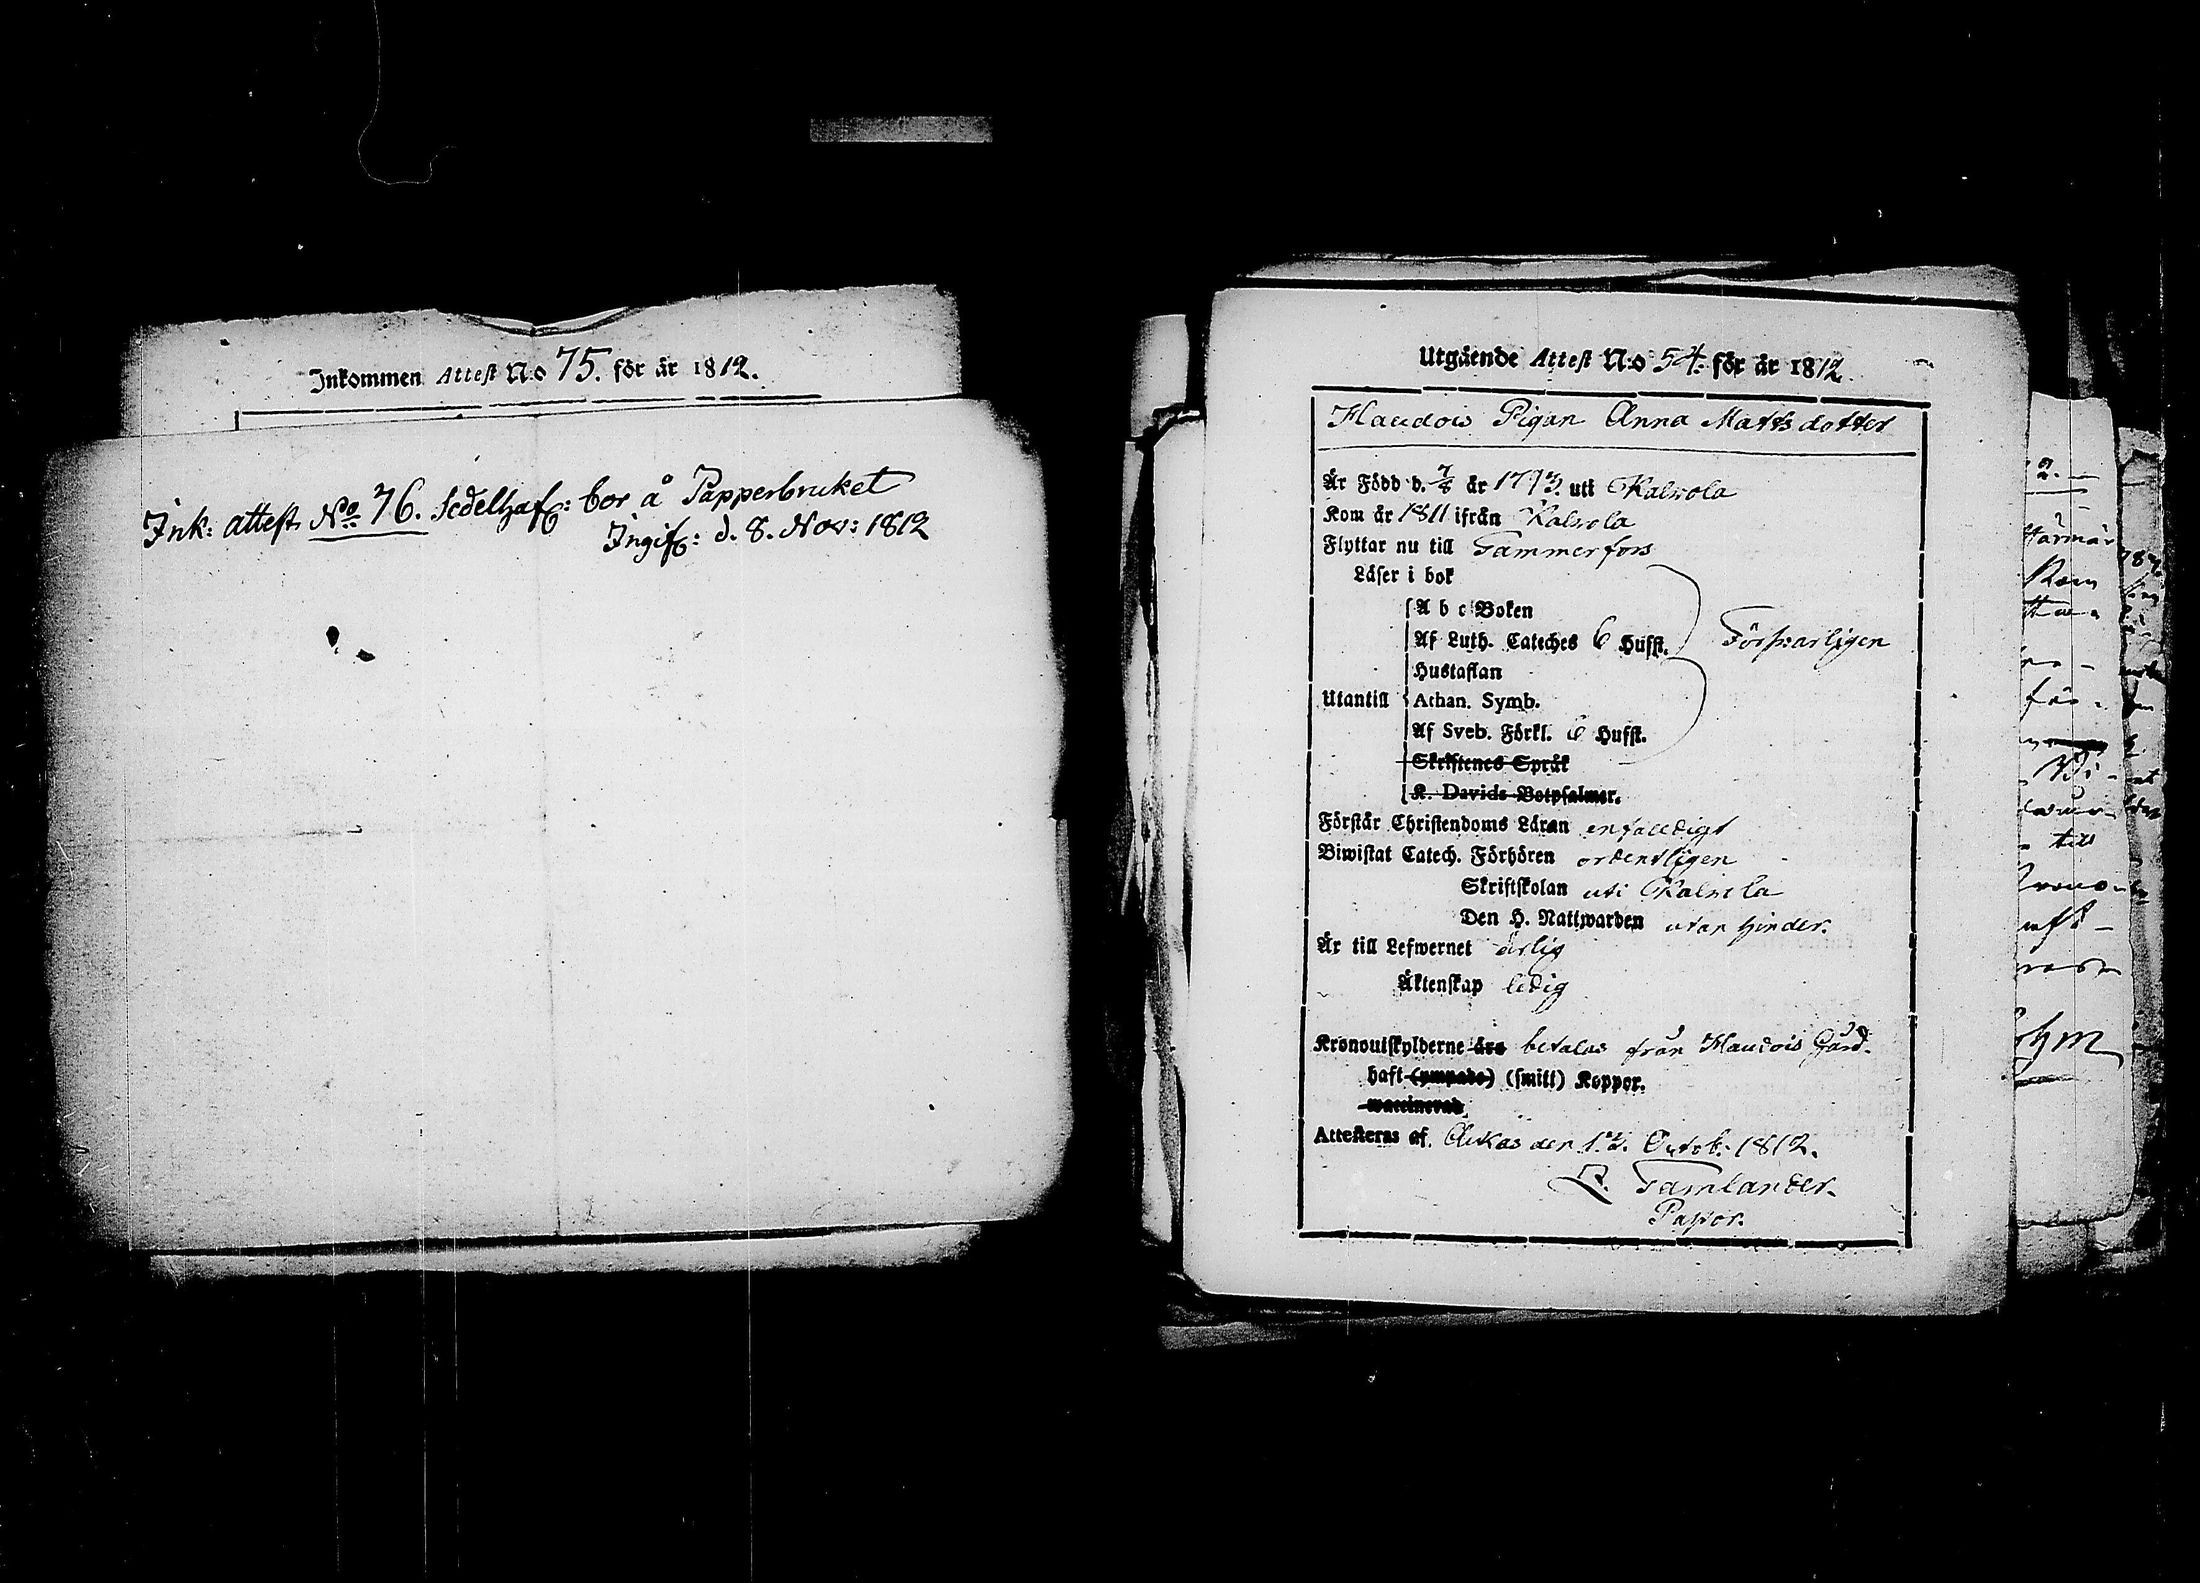 Inkommen Attest N:o 75. för år 1812.
Ink: attest No 76. Sedelhaf: bor å Papperbruket
Ingif: d. 8. Nov: 1812
Utgående Attest N:o 54. för år 1812.
Haudois Pigan Anna Mattsdotter
Är Född d. 7/8 år 1793. uti Kalvola
Kom år 1811 ifrån Kalvola
Flyttar nu till Tammerfors
Läser i bok
A b c Boken
Af Luth. Cateches 6 Hufst. Försvarligen
Hustaflan
Utantill Athan. Symb.
Af Sveb. Förkl. 6 Hufst.
Skriftenes Språk
K. Davids Botpsalmer.
Förstår Christendoms Läran enfalldigt
Biwistat Catech. Förhören ordentligen
Skriftskolan uti Kalvola
Den H. Nattwarden utan hinder.
Är till Lefwernet ärlig
Äktenskap ledig
Kronoutskylderne äro betalas från Haudois Gård.
haft (ympade) (smitt) Koppor.
waccinerad
Attesteras af. Akas den 13. Octob. 1812.
Tamlander.
Pastor.
2.
Kom
för
Wi-
till